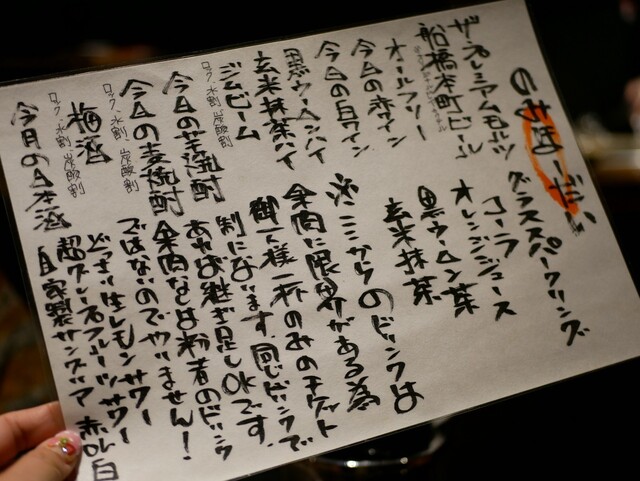 のみほーだい
ザ・プレミアムモルツ
船橋本町ビール
オールフリー
今日の赤ワイン
今日の白ワイン
黒ウーロンハイ
玄米抹茶ハイ
ジムビーム
ロック、水割、炭酸割
今日の芋焼酎
今日の麦焼酎
ロック、水割、炭酸割
梅酒
ロック、水割、炭酸割
今月の日本酒
グラススパークリング
コーラ
オレンジジュース
黒ウーロン茶
玄米抹茶
※ここからのドリンクは
果肉に限界がある為
御一人様一杯のみのチケット
制になります。同じドリンクで
あれば継ぎ足しOKです。
果肉などはのドリンク
ではないのでやりません!
どっさり生レモンサワー
超グレープフルーツサワー
自家製サングリア 赤or白